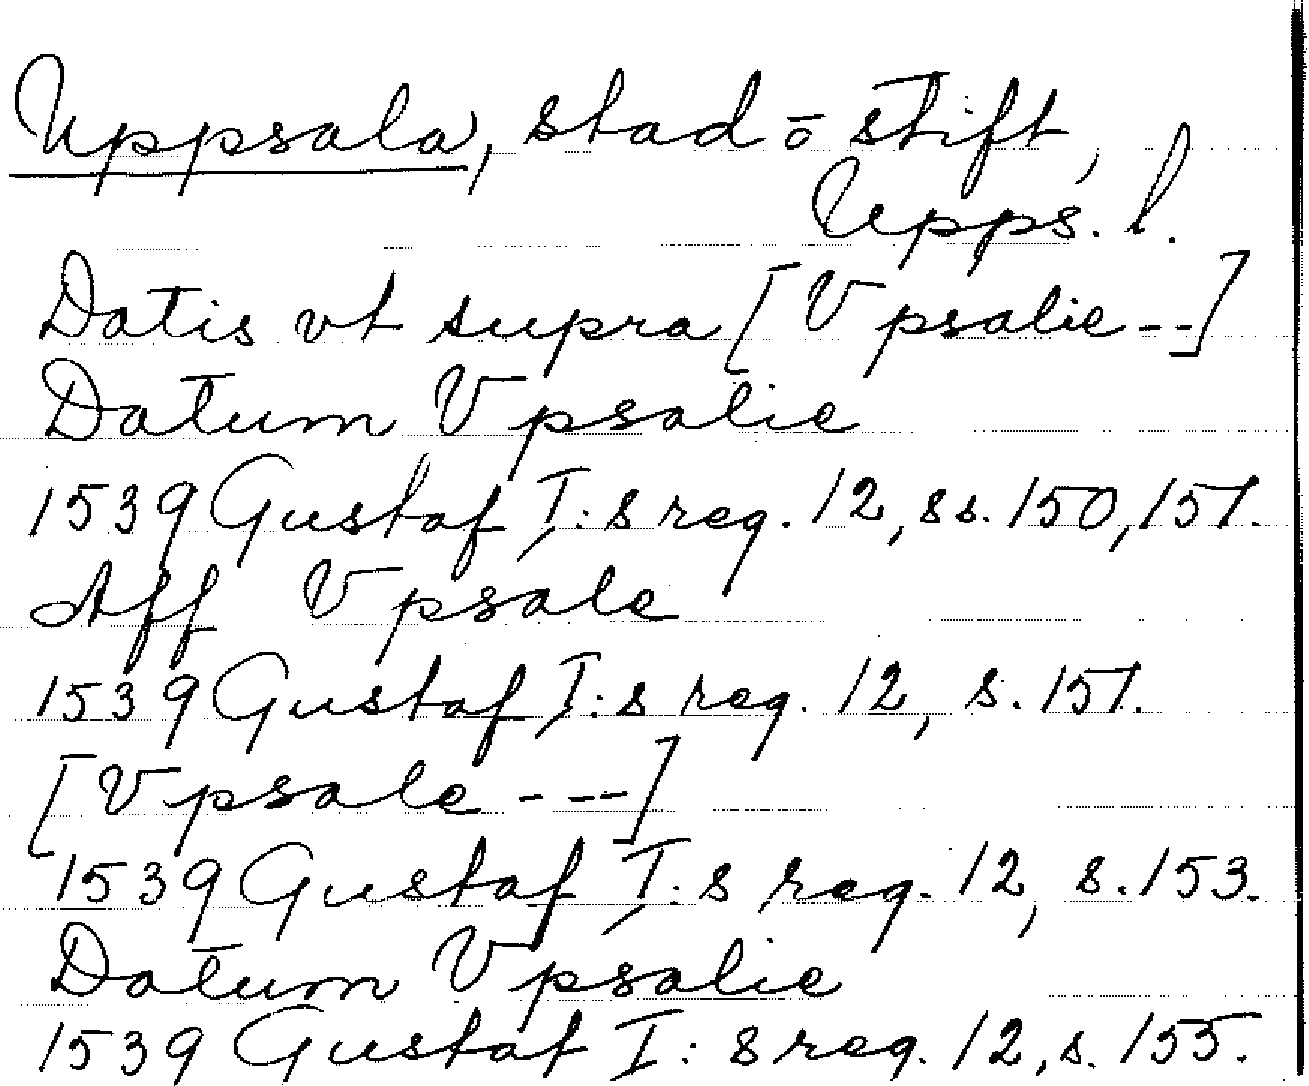 Uppsala, stad o stift,
Upps. l.
Datis vt supra [Vpsalie--]
Datum Vpsalie
1539 Gustaf I:s reg. 12, ss. 150, 151.
Aff Vpsale
1539 Gustaf I:s reg. 12, s. 151.
[Vpsale ---]
1539 Gustaf I:s reg. 12, s. 153.
Datum Vpsalie
1539 Gustaf I:s reg. 12, s. 155.